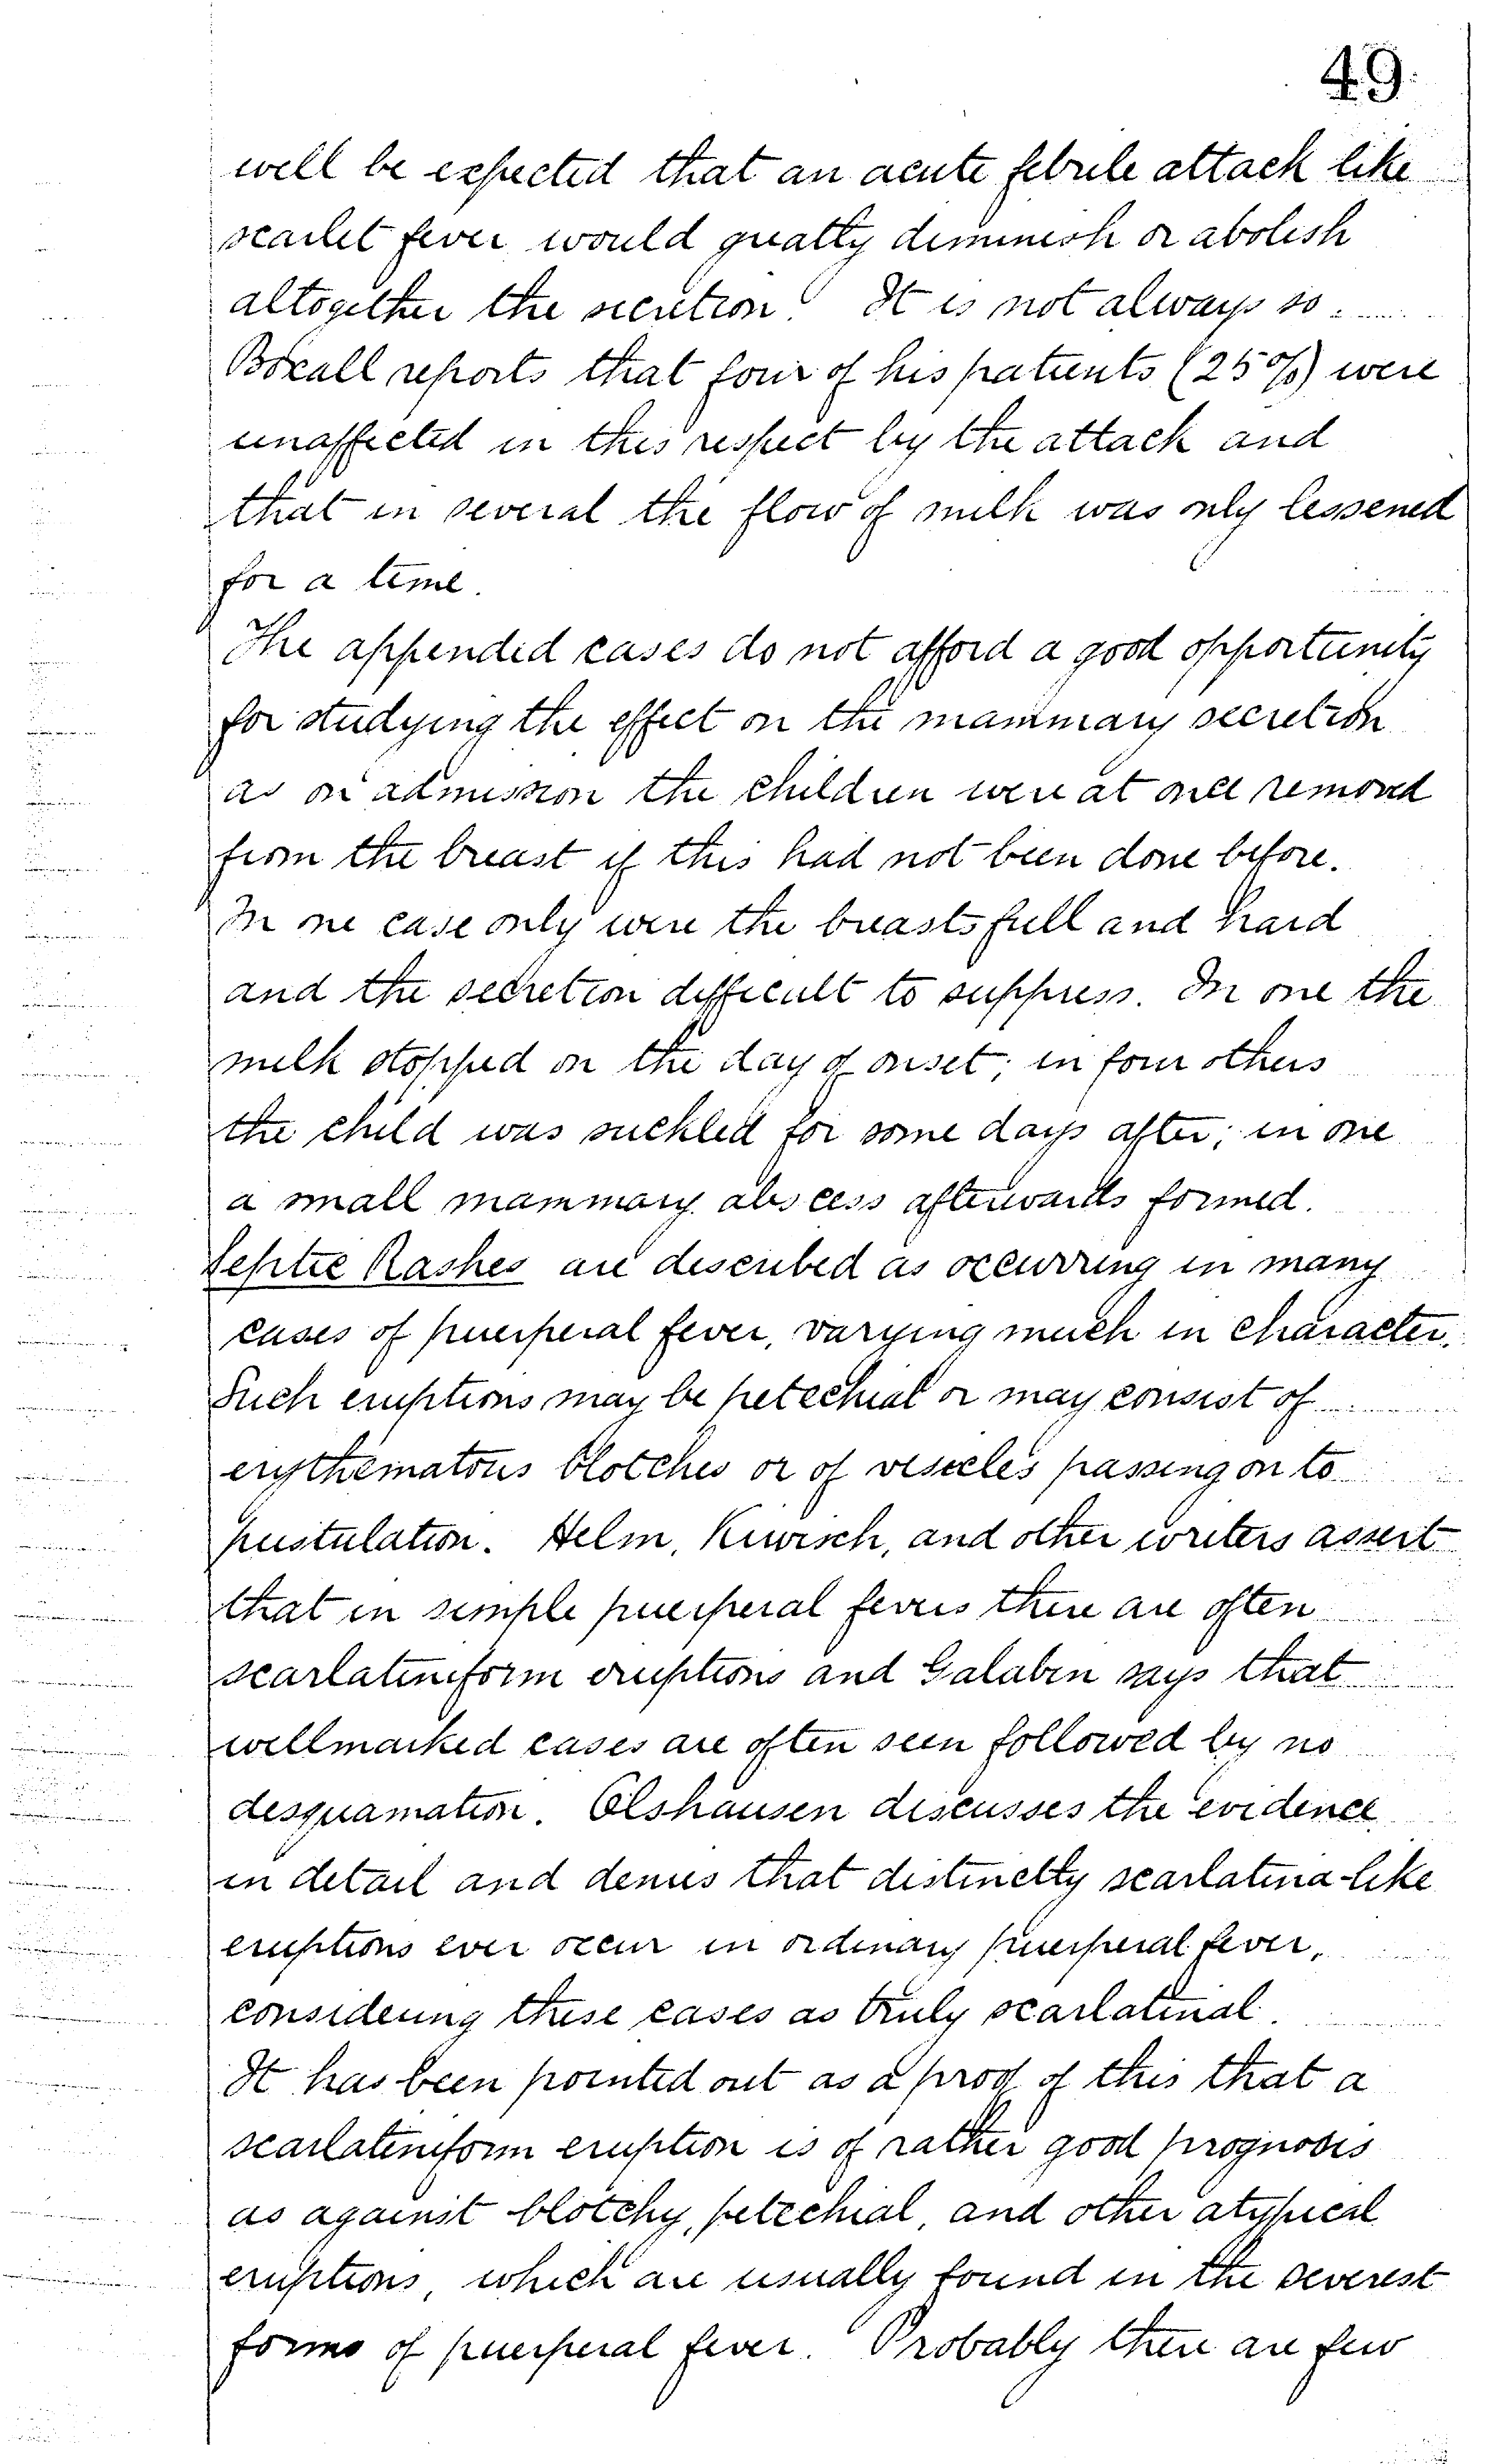 49.
will be expected that an acute febrile attack like
scarlet fever would greatly diminish or abolish
altogether the secretion. It is not always so.
Boxall reports that four of his patients (25%) were
unaffected in this respect by the attack and
that in several the flow of milk was only lessened
for a time.
The appended cases do not afford a good opportunity
for studying the effect on the mammary secretion
as on admission the children were at once removed
from the breast if this had not been done before.
In one case only were the breasts full and hard
and the secretion difficult to suppress. In one the
milk stopped on the day of onset; in four others
the child was suckled for some days after; in one
a small mammary abscess afterwards formed.
Septic Rashes are described as occurring in many
cases of puerperal fever, varying much in character.
Such eruptions may be petechial or may consist of
erythematous blotches or of vesicles passing on to
pustulation. Helm, Kiwisch, and other writers assert
that in simple puerperal fevers there are often
scarlatiniform eruptions and Galabin says that
wellmarked cases are often seen followed by no
desquamation. Olshausen discusses the evidence
in detail and denies that distinctly scarlatina-like
eruptions ever occur in ordinary puerperal fever,
considering these cases as truly scarlatinal.
It has been pointed out as a proof of this that a
scarlatiniform eruption is of rather good prognosis
as against blotchy, petechial, and other atypical
eruptions, which are usually found in the severest
forms of puerperal fever. Probably there are few